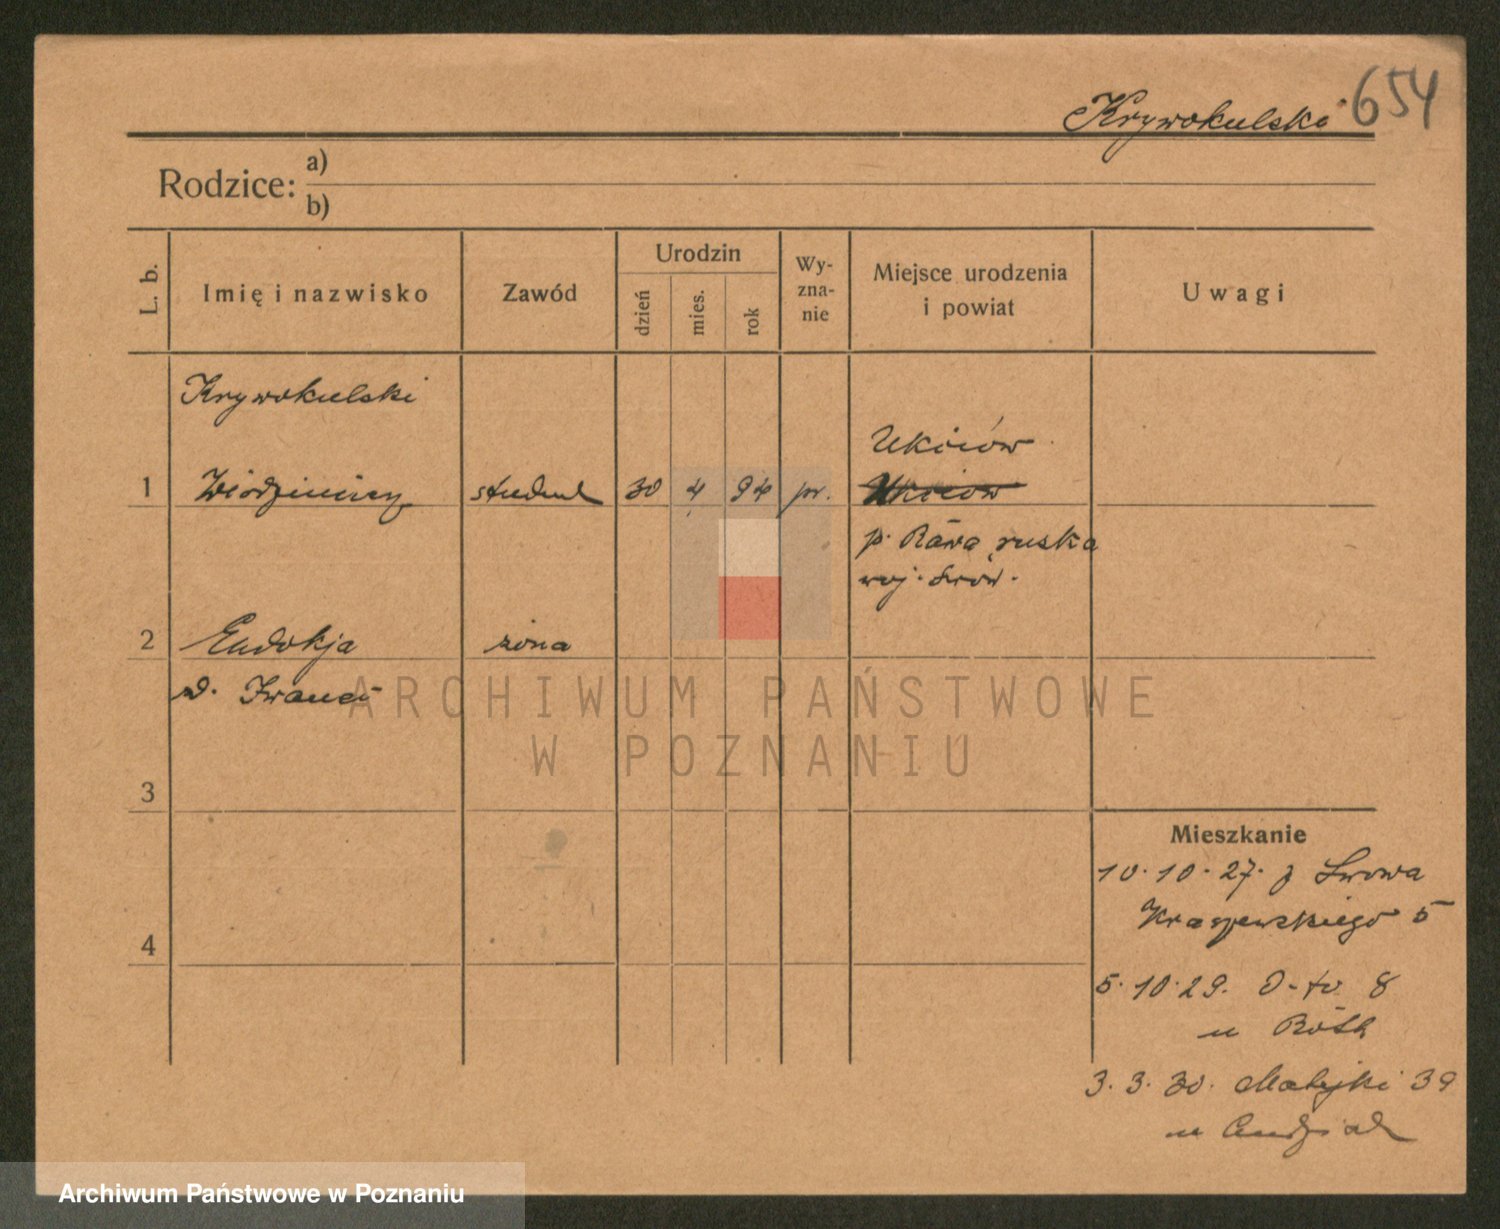 Krywokulski 654
Rodzice: a)
b)
L. b. Imię i nazwisko Zawód Urodzin dzień mies. rok Wy-zna-nie Miejsce urodzenia i powiat Uwagi
Krywokulski
1 Włodzimierz student 30 4 94 pr. Ukiców
p. Rawa ruska
woj. Lwów.
2 Eudokja żona
d. Iwanci
ARCHIWUM PAŃSTWOWE
W POZNANIU
3
Mieszkanie
10.10.27. z Lwowa
Kraszewskiego 5
4
5.10.29. O-to 8
u Róth
3.3.30. Matejki 39
u
Archiwum Państwowe w Poznaniu